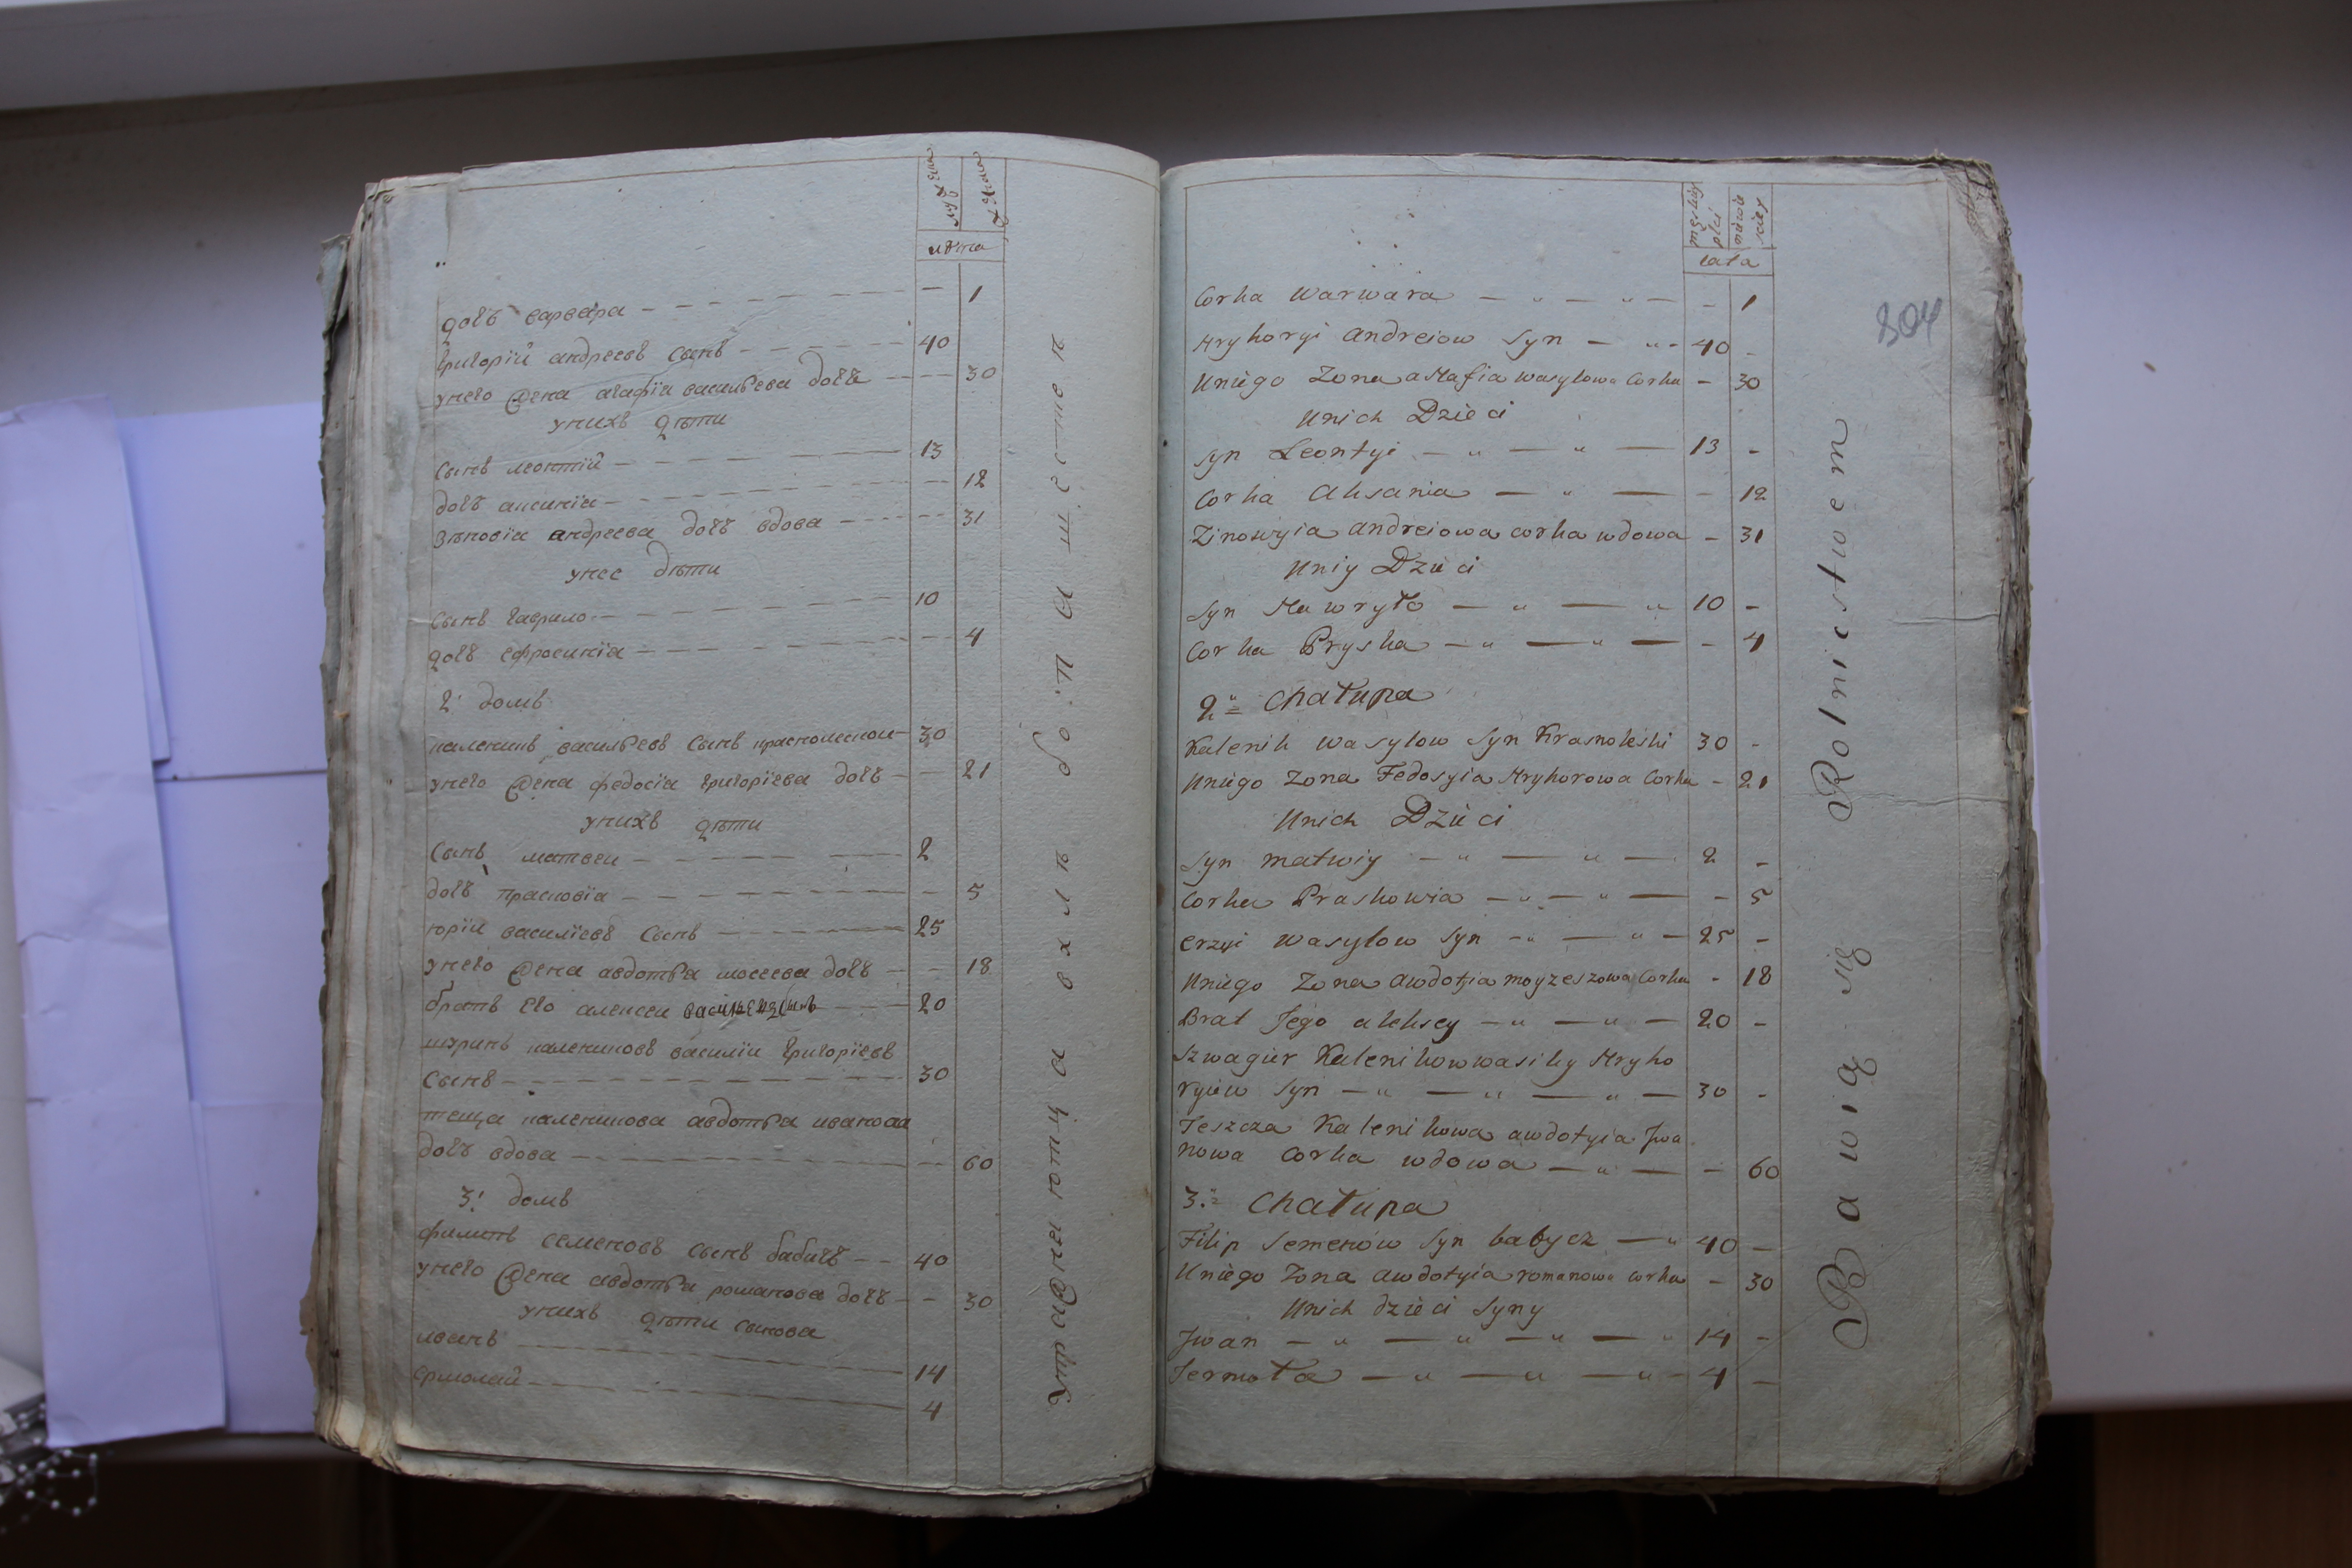 мужеска
женска
лѣта
дочь варвара — 1
григорій андреевъ сынъ — 40
унего жена агафія васильева дочь — 30
унихъ дѣти
сынъ леонтій — 13
дочь аксинія — 12
зѣновія андреева дочь вдова — 31
унее дѣти
сынъ гаврило — 10
дочь ефросинія — 4
2. домъ
каленикъ васильевъ сынъ красолескои — 30
унего жена федосія григоріева дочь — 21
унихъ дѣти
сынъ матвеи — 2
дочь прасковія — 5
юріи василіевъ сынъ — 25
унего жена авдотья мосеева дочь — 18
братъ его алексеи — 20
шуринъ калениковъ василіи григоріевъ
сынъ — 30
теща каленикова авдотья иванова
дочь вдова — 60
3. домъ
филипъ семеновъ сынъ бабичъ — 40
унего жена авдотья романова дочь — 30
унихъ дѣти сыновя
иванъ — 14
ермолай — 4
упражняются в хлѣбопашестве
męskiy płci
niewie sciey
Lata
304
Corka Warwara — 1
Hryhoryi Andreiow Syn — 40
Uniego Zona aHafia Wasylowa Corka — 30
Unich Dzieci
Syn Leontyi — 13
Corka Aksania — 12
Zinowyia Andreiowa corka wdowa — 31
Uniy Dzieci
Syn Hawryło — 10
Corka Pryska — 4
2. Chałupa
Kalenik Wasylow Syn Krasnoleski 30
Uniego Zona Fedosyia Hryhorowa Corka — 21
Unich Dzieci
Syn Matwiy — 2
Corka Praskowia — 5
erzyi Wasylow Syn — 25
Uniego Zona Awdotjia Moyzeszowa Corka — 18
Brat Jego aleksey — 20
Szwagier Kalenikow Wasiley Hryho
ryiew Syn — 30
Teszcza Kalenikowa awdotyia Jwa
nowa Corka wdowa — 60
3. Chałupa
Filip Semenow Syn babycz — 40
Uniego Zona Awdotyia romanowa corka — 30
Unich dzieci Syny
Jwan — 14
Jermoła — 4
Bawią się Rolnictwem